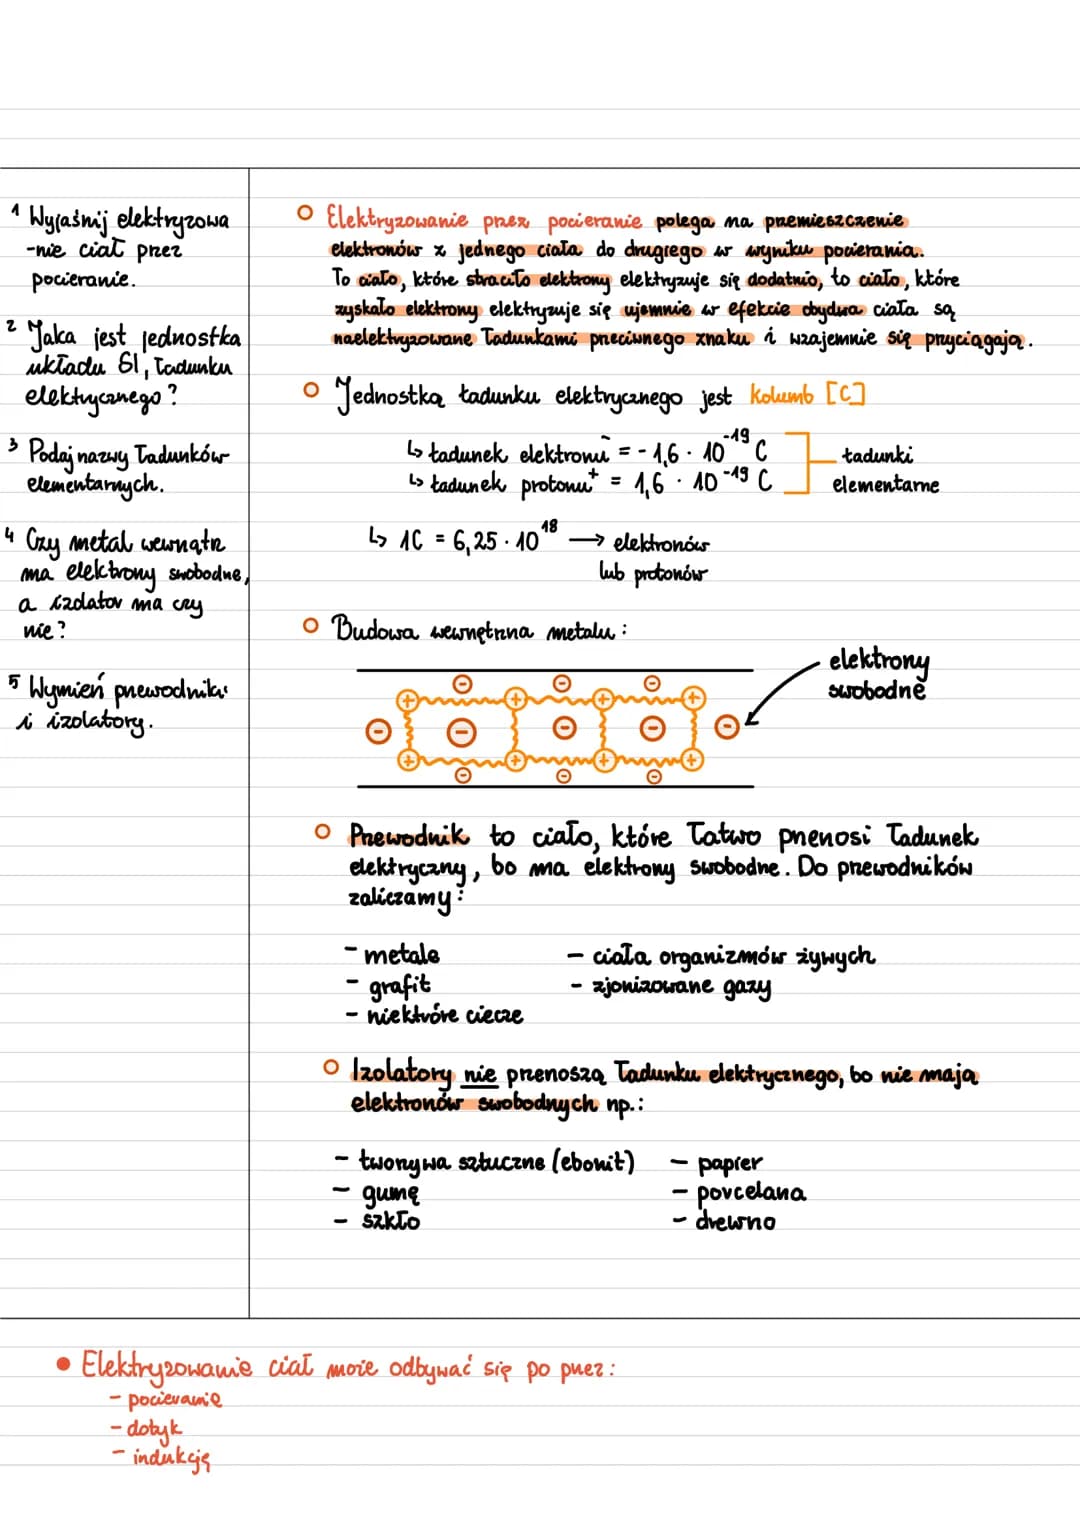 1 Wyjaśnij elektryzowa
-nie ciał przez
pocieranie.
2 Jaka jest jednostka
układu SI, ładunku
elektrycznego?
3 Podaj nazwy ładunków
elementarnych.
4 Czy metal wewnątrz
ma elektrony swobodne,
a izolator ma czy
nie?
5 Wymień przewodniki
i izolatory.
Elektryzowanie przez pocieranie polega na przemieszczenie
elektronów z jednego ciała do drugiego w wyniku pocierania.
To ciało, które straciło elektrony elektryzuje się dodatnio, to ciało, które
zyskało elektrony elektryzuje się ujemnie w efekcie obydwa ciała są
naelektryzowane ładunkami przeciwnego znaku i wzajemnie się przyciągają.
Jednostką ładunku elektrycznego jest kolumb [C]
↳ ładunek elektronu⁻ = - 1,6 · 10⁻¹⁹ C
↳ ładunek protonu⁺ = 1,6 · 10⁻¹⁹ C
ładunki
elementarne
↳ 1C = 6,25 · 10¹⁸ → elektronów
lub protonów
Budowa wewnętrzna metalu:
elektrony
swobodne
Przewodnik to ciało, które łatwo przenosi ładunek
elektryczny, bo ma elektrony swobodne. Do przewodników
zaliczamy:
- metale
- grafit
- niektóre ciecze
- ciała organizmów żywych
- zjonizowane gazy
Izolatory nie przenoszą ładunku elektrycznego, bo nie mają
elektronów swobodnych np.:
- tworzywa sztuczne (ebonit)
- gumę
- szkło
- papier
- porcelana
- drewno
• Elektryzowanie ciał może odbywać się po przez:
- pocieranie
- dotyk
- indukcję